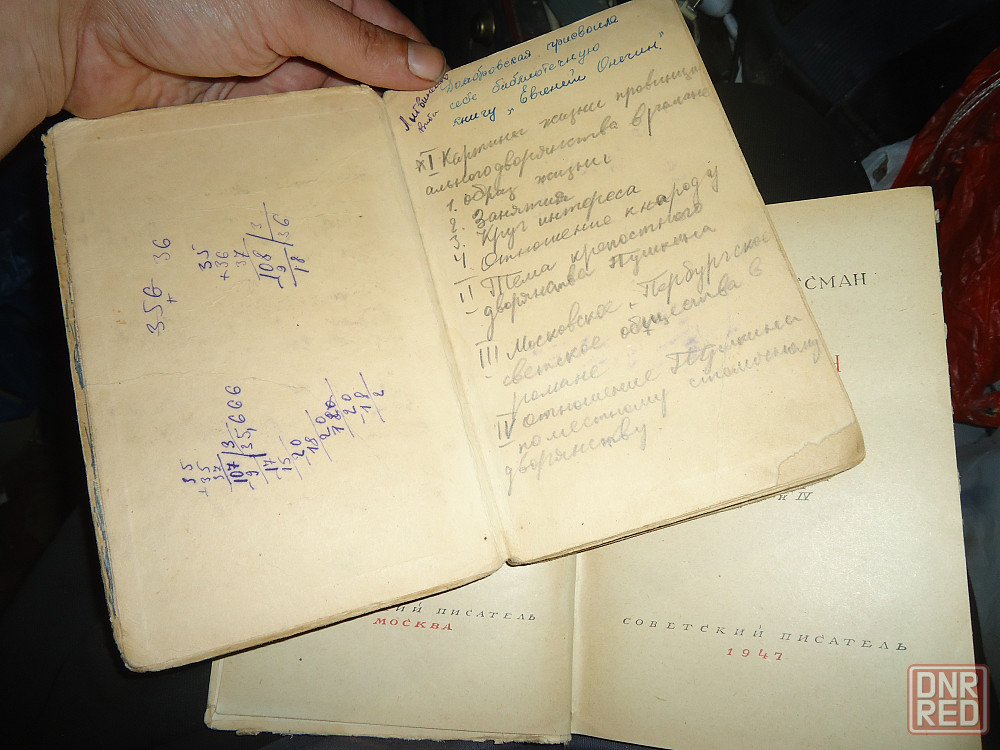 356 36
+
35
+36
37
108 | 3
9 | 36
18
35
+35
37
107 | 3
9 | 35,666
17
15
20
18
20
18
20
-18
2
Домбровская присвоила
себе библиотечную
книгу „Евгений Онегин."
XI Картины жизни провинци
ального дворянства в романе
1. образ жизни
2. Занятия
3. Круг интереса
4. Отношение к народу
II Тема крепостного
дворянства Пушкина
III Московское, Пербургское
светское общества в
романе
IV отношение Пушкина
поместному столичному
дворянству.
СМАН
Н
и IV
ИЙ ПИСАТЕЛЬ
МОСКВА
СОВЕТСКИЙ ПИСАТЕЛЬ
1947
DNR
RED